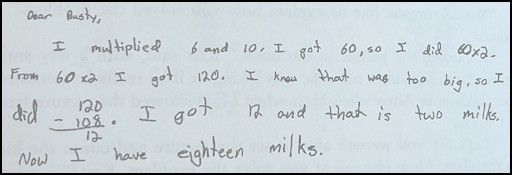 Dear Rusty,
I multiplied 6 and 10. I got 60, so I did 60x2.
From 60x2 I got 120. I knew that was too big, so I
did 120 - 108 = 12. I got 12 and that is two milks.
Now I have eighteen milks.